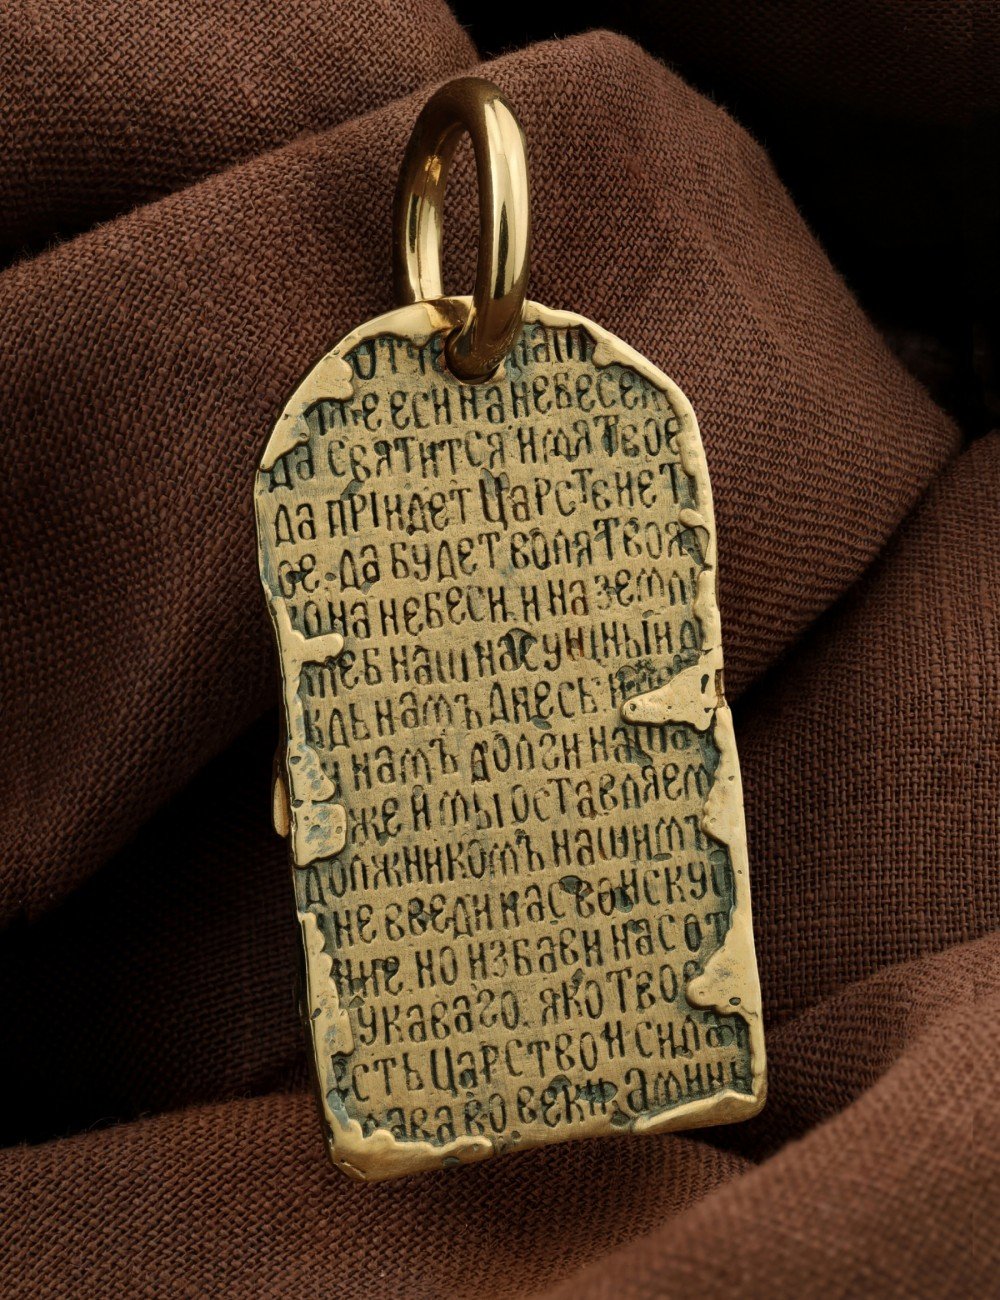 ОТЧЕ НАШ
ЖЕ ЕСИ НА НЕБЕСЕХ
ДА СВЯТИТСЯ ИМЯ ТВОЕ
ДА ПРІИДЕТ ЦАРСТЕНЕ Т
ОЕ. ДА БУДЕТ ВОЛЯ ТВОЯ
КО НА НЕБЕСИ. И НА ЗЕМЛИ
ЛЕБ НАШ НАСУЩНЫЙ Д
ЖДЬ НАМЪ ДНЕСЬ. И
И НАМЪ ДОЛГИ НАША
ЖЕ И МЫ ОСТАВЛЯЕМ
ДОЛЖНИКОМЪ НАШИМЪ
НЕ ВВЕДИ НАС ВО ИСКУ
НИЕ. НО ИЗБАВИ НАС ОТ
УКАВАГО. ЯКО ТВОЕ
ЕСТЬ ЦАРСТВО И СИЛА
ЛАВА ВО ВЕКИ. АМИНЬ